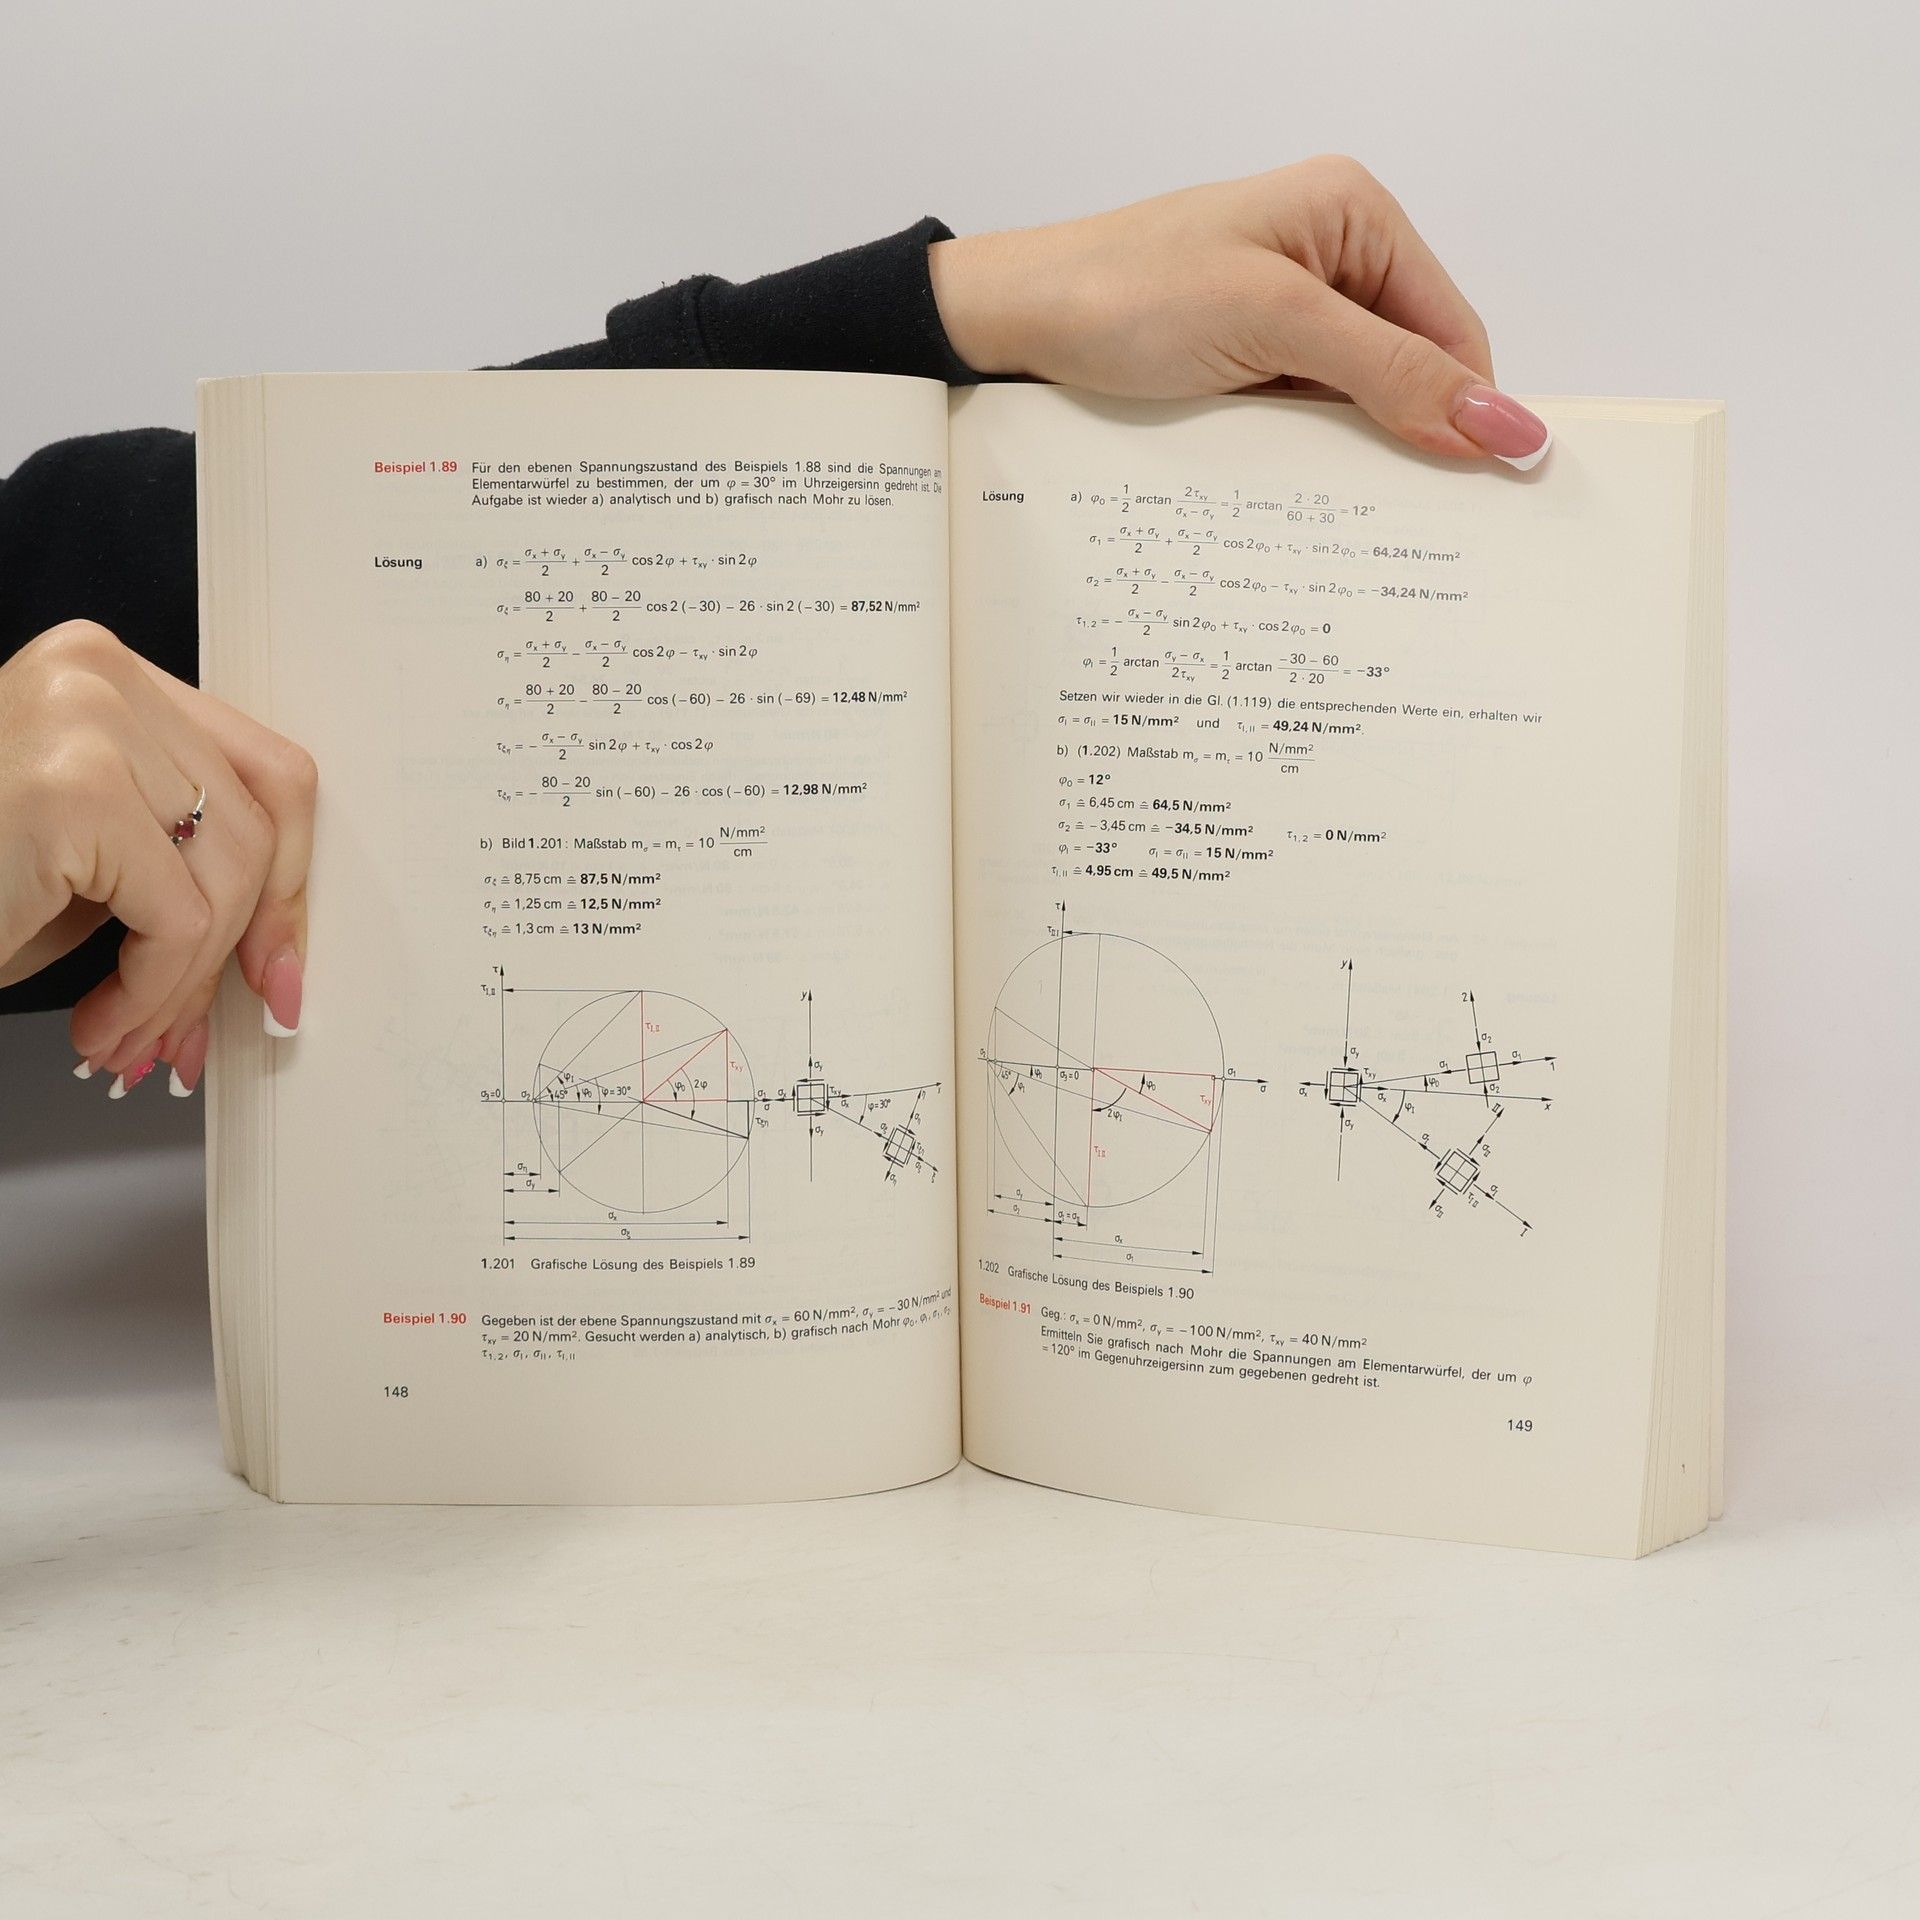 Beispiel 1.89 Für den ebenen Spannungszustand des Beispiels 1.88 sind die Spannungen am
Elementarwürfel zu bestimmen, der um φ = 30° im Uhrzeigersinn gedreht ist. Die
Aufgabe ist wieder a) analytisch und b) grafisch nach Mohr zu lösen.
Lösung a) σξ = (σx + σy)/2 + (σx − σy)/2 cos 2φ + τxy · sin 2φ
σξ = (80 + 20)/2 + (80 − 20)/2 cos 2 (−30) − 26 · sin 2 (−30) = 87,52 N/mm²
ση = (σx + σy)/2 − (σx − σy)/2 cos 2φ − τxy · sin 2φ
ση = (80 + 20)/2 − (80 − 20)/2 cos (−60) − 26 · sin (−69) = 12,48 N/mm²
τξη = − (σx − σy)/2 sin 2φ + τxy · cos 2φ
τξη = − (80 − 20)/2 sin (−60) − 26 · cos (−60) = 12,98 N/mm²
b) Bild 1.201: Maßstab mσ = mτ = 10 N/mm²/cm
σξ ≙ 8,75 cm ≙ 87,5 N/mm²
ση ≙ 1,25 cm ≙ 12,5 N/mm²
τξη ≙ 1,3 cm ≙ 13 N/mm²
1.201 Grafische Lösung des Beispiels 1.89
Beispiel 1.90 Gegeben ist der ebene Spannungszustand mit σx = 60 N/mm², σy = −30 N/mm² und
τxy = 20 N/mm². Gesucht werden a) analytisch, b) grafisch nach Mohr φ0, φI, σ1, σ2,
τ1,2, σI, σII, τI,II
148
Lösung a) φ0 = 1/2 arctan 2τxy/(σx − σy) = 1/2 arctan (2 · 20)/(60 + 30) = 12°
σ1 = (σx + σy)/2 + (σx − σy)/2 cos 2φ0 + τxy · sin 2φ0 = 64,24 N/mm²
σ2 = (σx + σy)/2 − (σx − σy)/2 cos 2φ0 − τxy · sin 2φ0 = −34,24 N/mm²
τ1,2 = − (σx − σy)/2 sin 2φ0 + τxy · cos 2φ0 = 0
φI = 1/2 arctan (σy − σx)/2τxy = 1/2 arctan (−30 − 60)/(2 · 20) = −33°
Setzen wir wieder in die Gl. (1.119) die entsprechenden Werte ein, erhalten wir
σI = σII = 15 N/mm² und τI,II = 49,24 N/mm².
b) (1.202) Maßstab mσ = mτ = 10 N/mm²/cm
φ0 = 12°
σ1 ≙ 6,45 cm ≙ 64,5 N/mm²
σ2 ≙ −3,45 cm ≙ −34,5 N/mm² τ1,2 = 0 N/mm²
φI = −33° σI = σII = 15 N/mm²
τI,II ≙ 4,95 cm ≙ 49,5 N/mm²
1.202 Grafische Lösung des Beispiels 1.90
Beispiel 1.91 Geg.: σx = 0 N/mm², σy = −100 N/mm², τxy = 40 N/mm²
Ermitteln Sie grafisch nach Mohr die Spannungen am Elementarwürfel, der um φ
= 120° im Gegenuhrzeigersinn zum gegebenen gedreht ist.
149